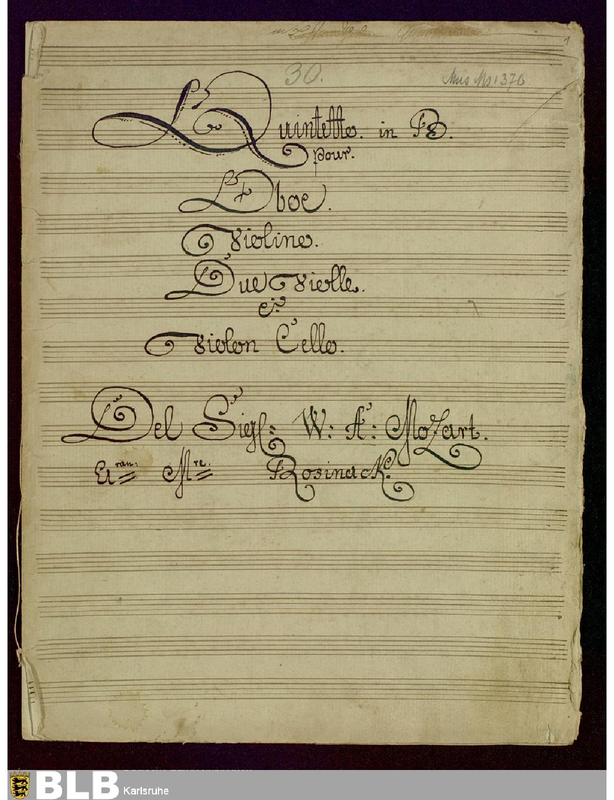 1
30.
Mus. Ms. 1376
Quintetto. in B.
pour.
Oboe.
Violino.
Due Violle.
e:
Violon Cello.
Del Sigl: W: A: Mozart.
ran: Mre. Rosinack.
BLB Karlsruhe